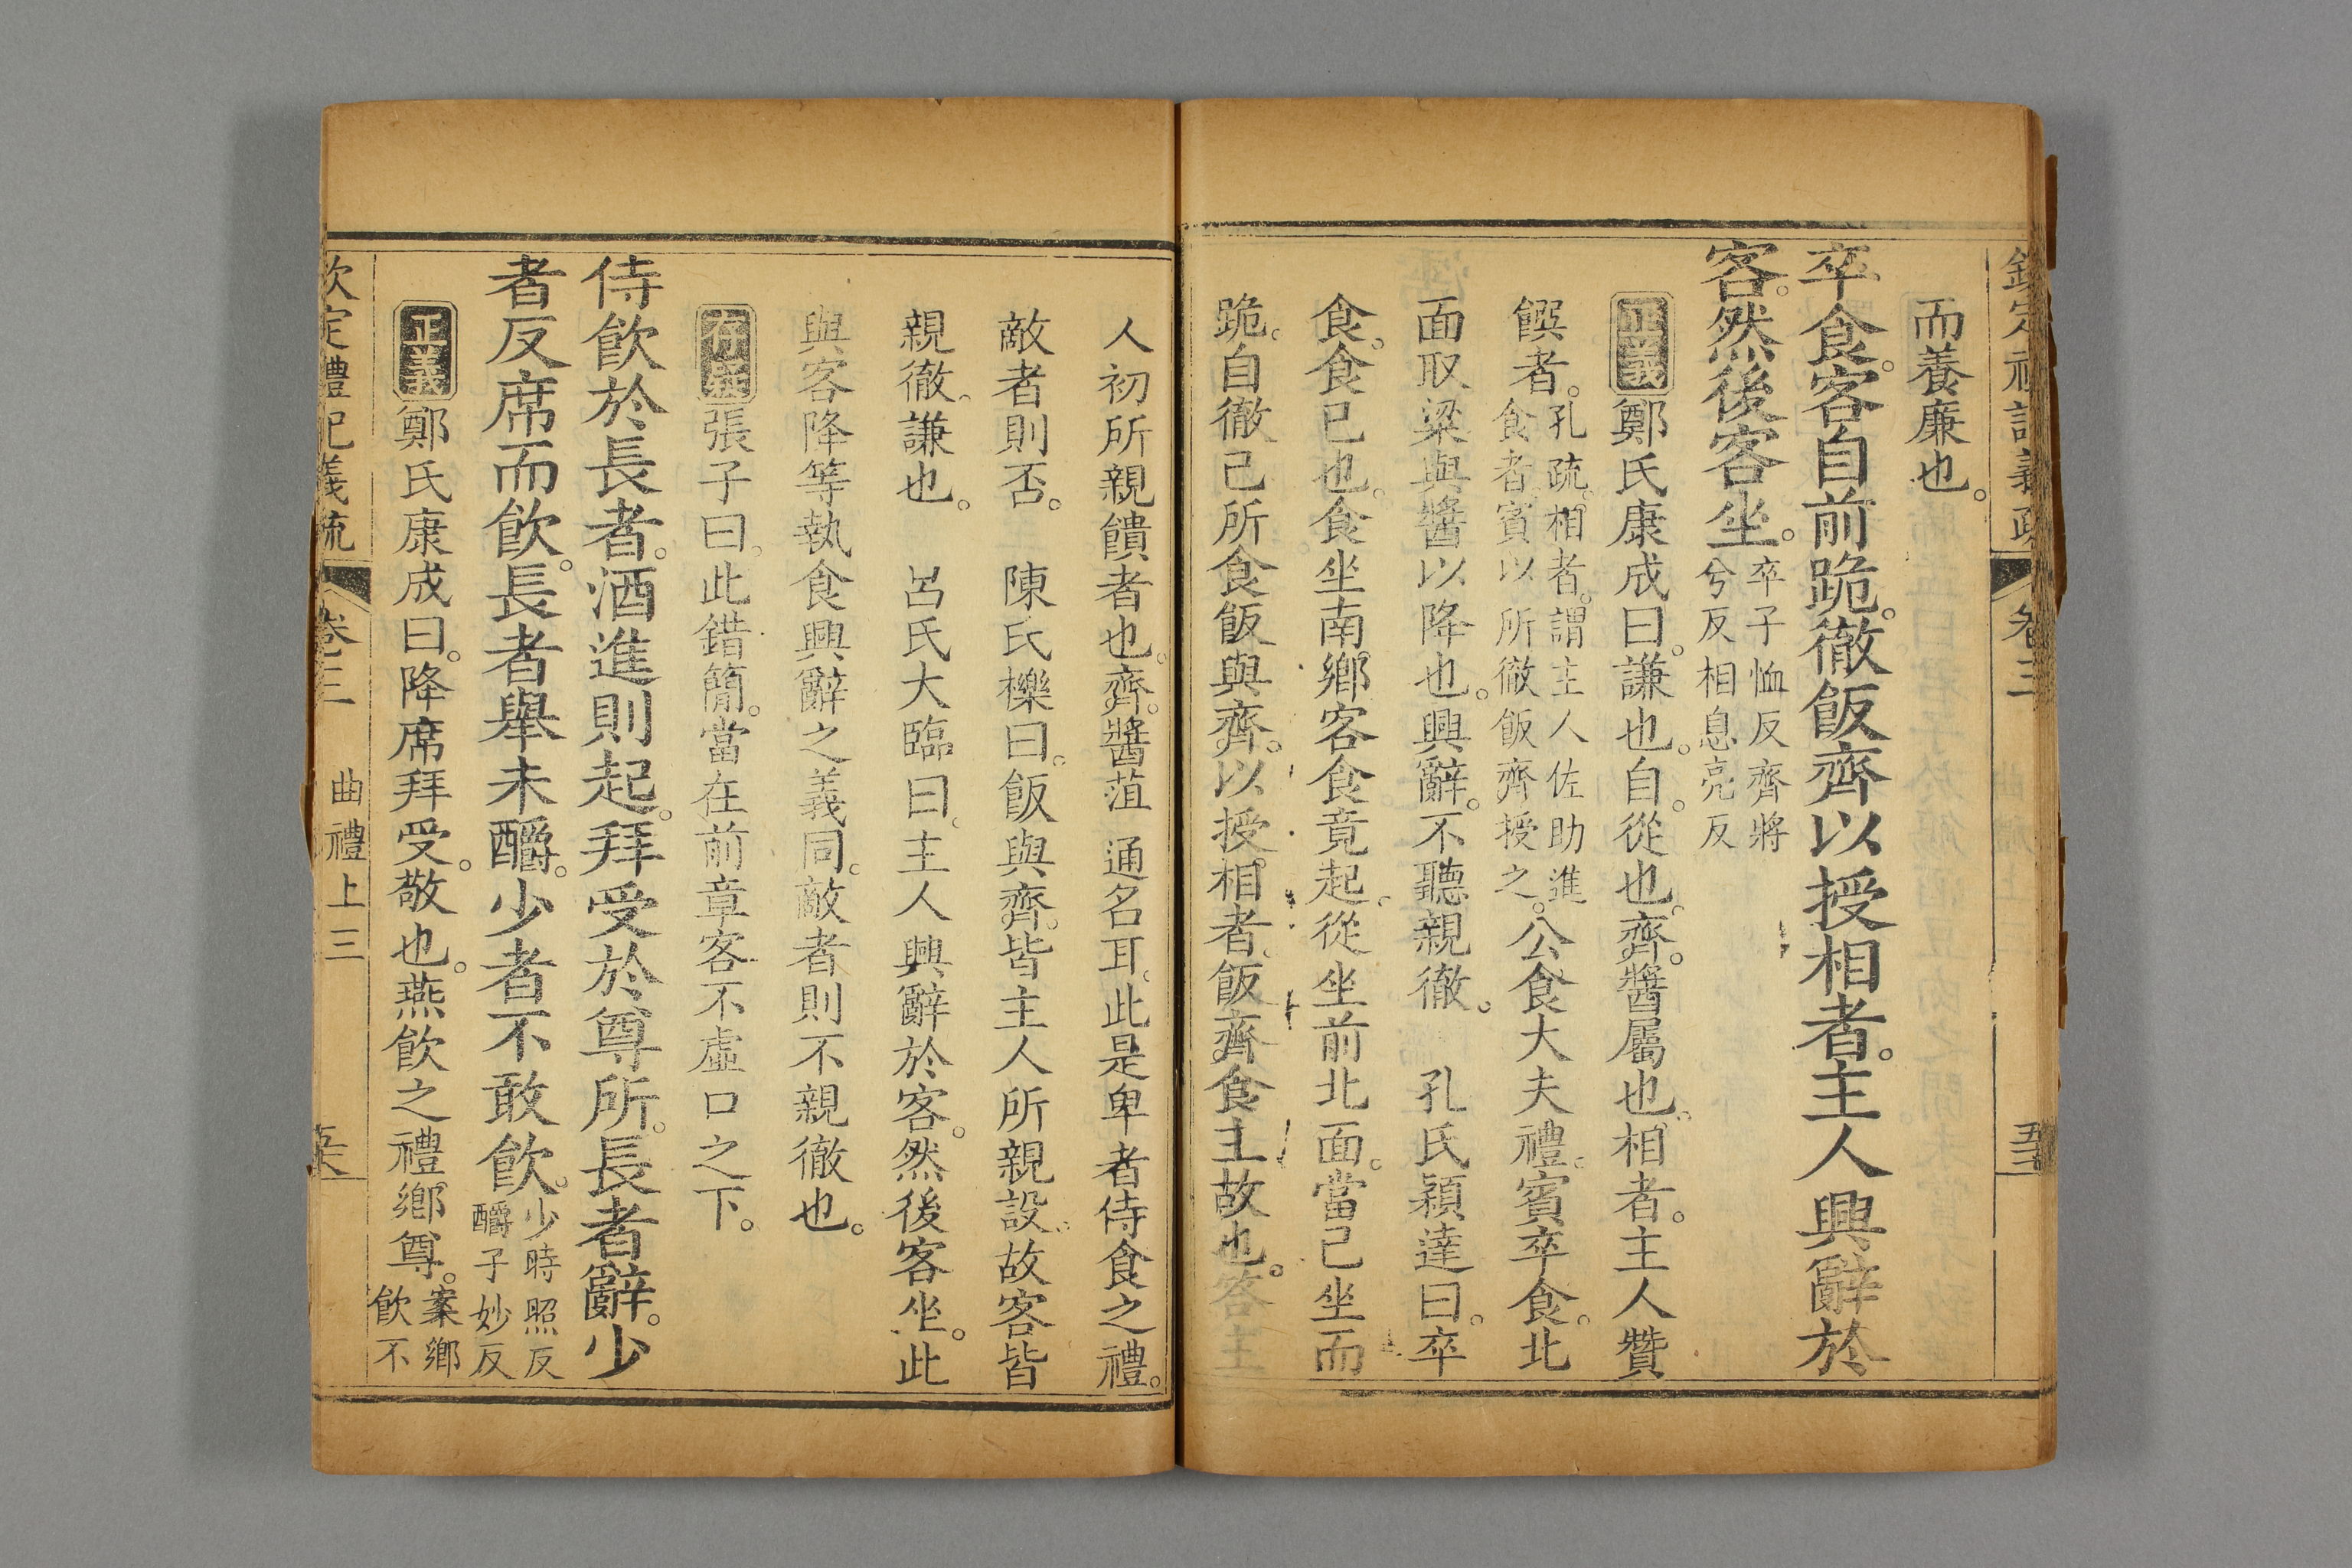 而養廉也。
卒食。客自前跪。徹飯齊以授相者。主人興辭於
客。然後客坐。卒子恤反齊將兮反相息亮反
正義鄭氏康成曰。謙也。自。從也。齊。醬屬也。相者。主人贊
饌者。孔疏。相者。謂主人佐助進食者。賓以所徹飯齊授之。公食大夫禮。賓卒食。北
面取粱與醬以降也。興辭。不聽親徹。 孔氏穎達曰。卒
食。食已也。食坐南鄉。客食竟起。從坐前北面。當己坐而
跪。自徹己所食飯與齊。以授相者。飯齊食主故也。答主
人初所親饋者也。齊。醬菹通名耳。此是卑者侍食之禮。
敵者則否。 陳氏櫟曰。飯與齊。皆主人所親設。故客皆
親徹。謙也。 呂氏大臨曰。主人興辭於客。然後客坐。此
與客降等執食興辭之義同。敵者則不親徹也。
存疑張子曰。此錯簡。當在前章客不虛口之下。
侍飲於長者。酒進則起。拜受於尊所。長者辭。少
者反席而飲。長者舉未釂。少者不敢飲。少時照反釂子妙反
正義鄭氏康成曰。降席拜受。敬也。燕飲之禮鄉尊。案鄉飲不
欽定禮記義疏 卷三 曲禮上三